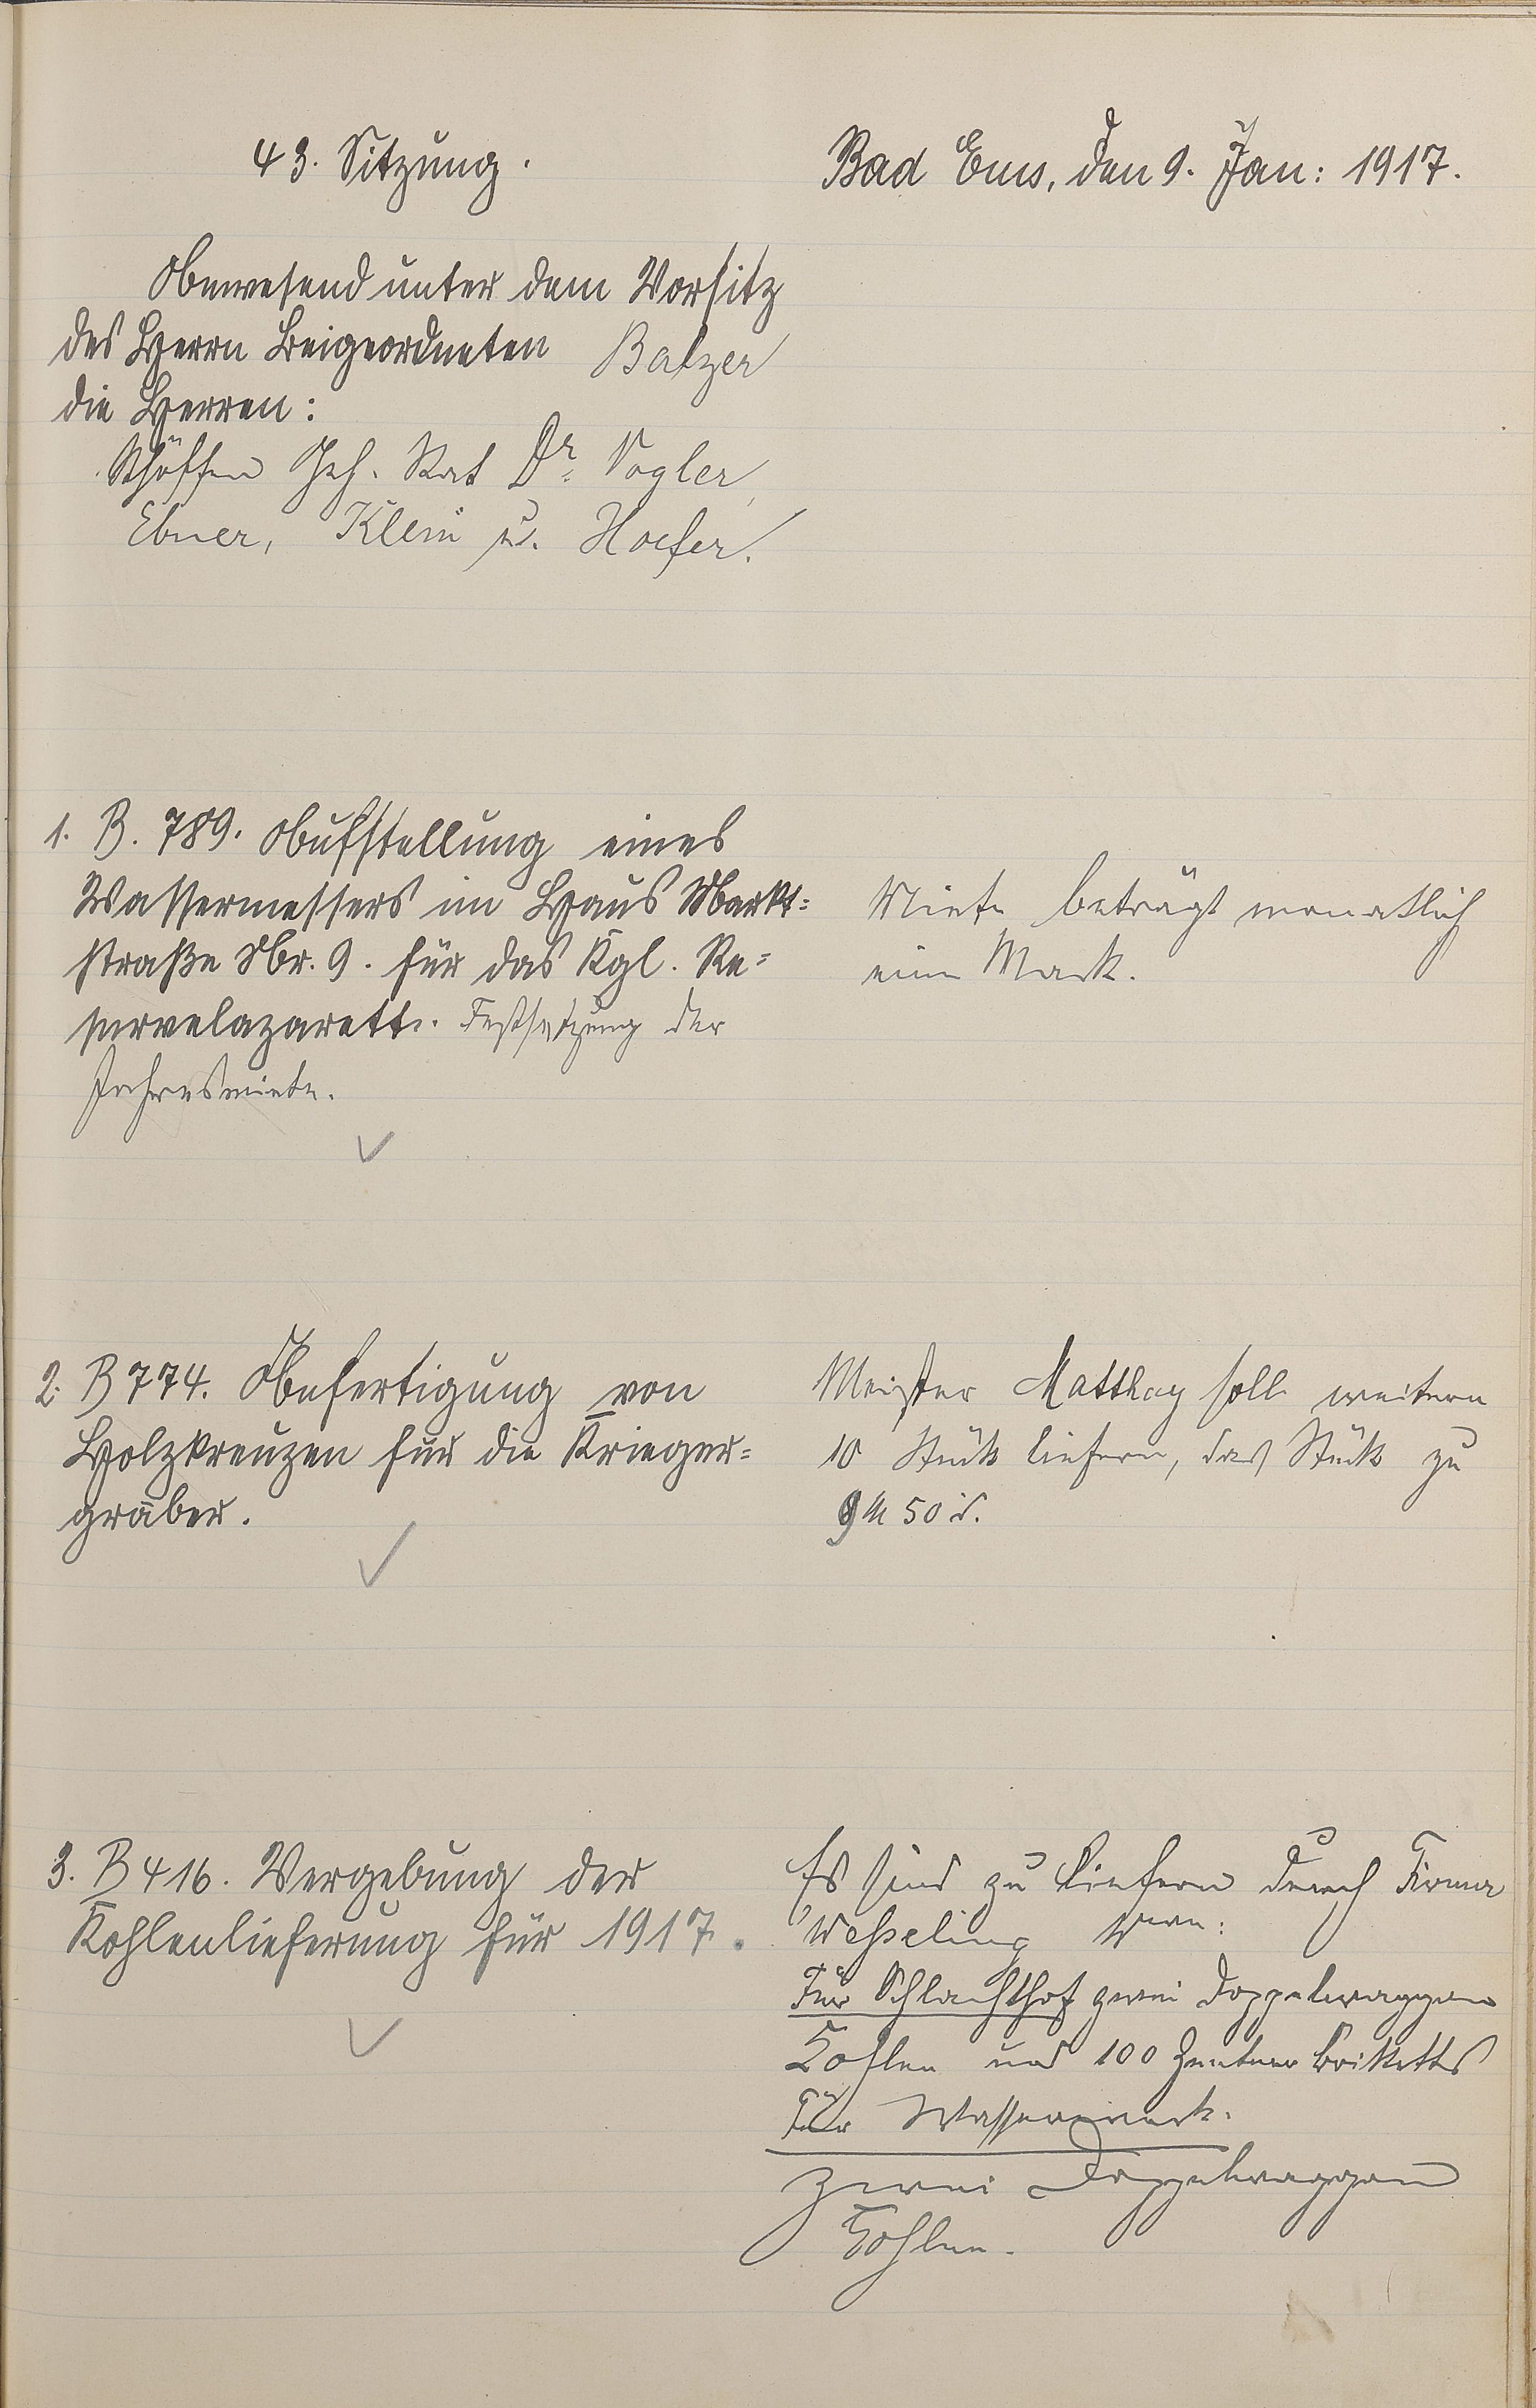 43. Sitzung.
Bad Ems, den 9. Jan: 1917.
Anwesend unter dem Vorsitz
des Herrn Beigeordneten Balzer
die Herren:
Schöffen Geh. Rat Dr. Vogler,
Ebner, Klein u. Hoefer.
1. B. 789. Aufstellung eines
Wassermessers im Haus Markt=
straße Nr. 9. für das Kgl. Re=
servelazarett. Festsetzung der
Jahresmiete.
Miete beträgt monatlich
eine Mark.
2. B 774. Anfertigung von
Holzkreuzen für die Krieger=
gräber.
Meister Matthay soll weitere
10 Stück liefern, das Stück zu
9 M 50 d.
3. B 416. Vergebung der
Kohlenlieferung für 1917.
Es sind zu liefern durch Firma
Wesseling
Für Schlachthof zwei Doppelwaggon
Kohlen und 100 Zentner Briketts
Für Wasserwerk.
zwei Doppelwaggon
Kohlen.